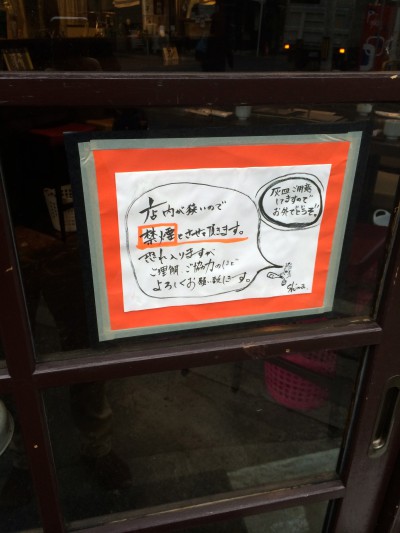 店内が狭いので
禁煙とさせて頂きます。
恐れ入りますが
ご理解 ご協力のほど
よろしくお願い致します。
灰皿ご用意
してますので
お外でどうぞ!